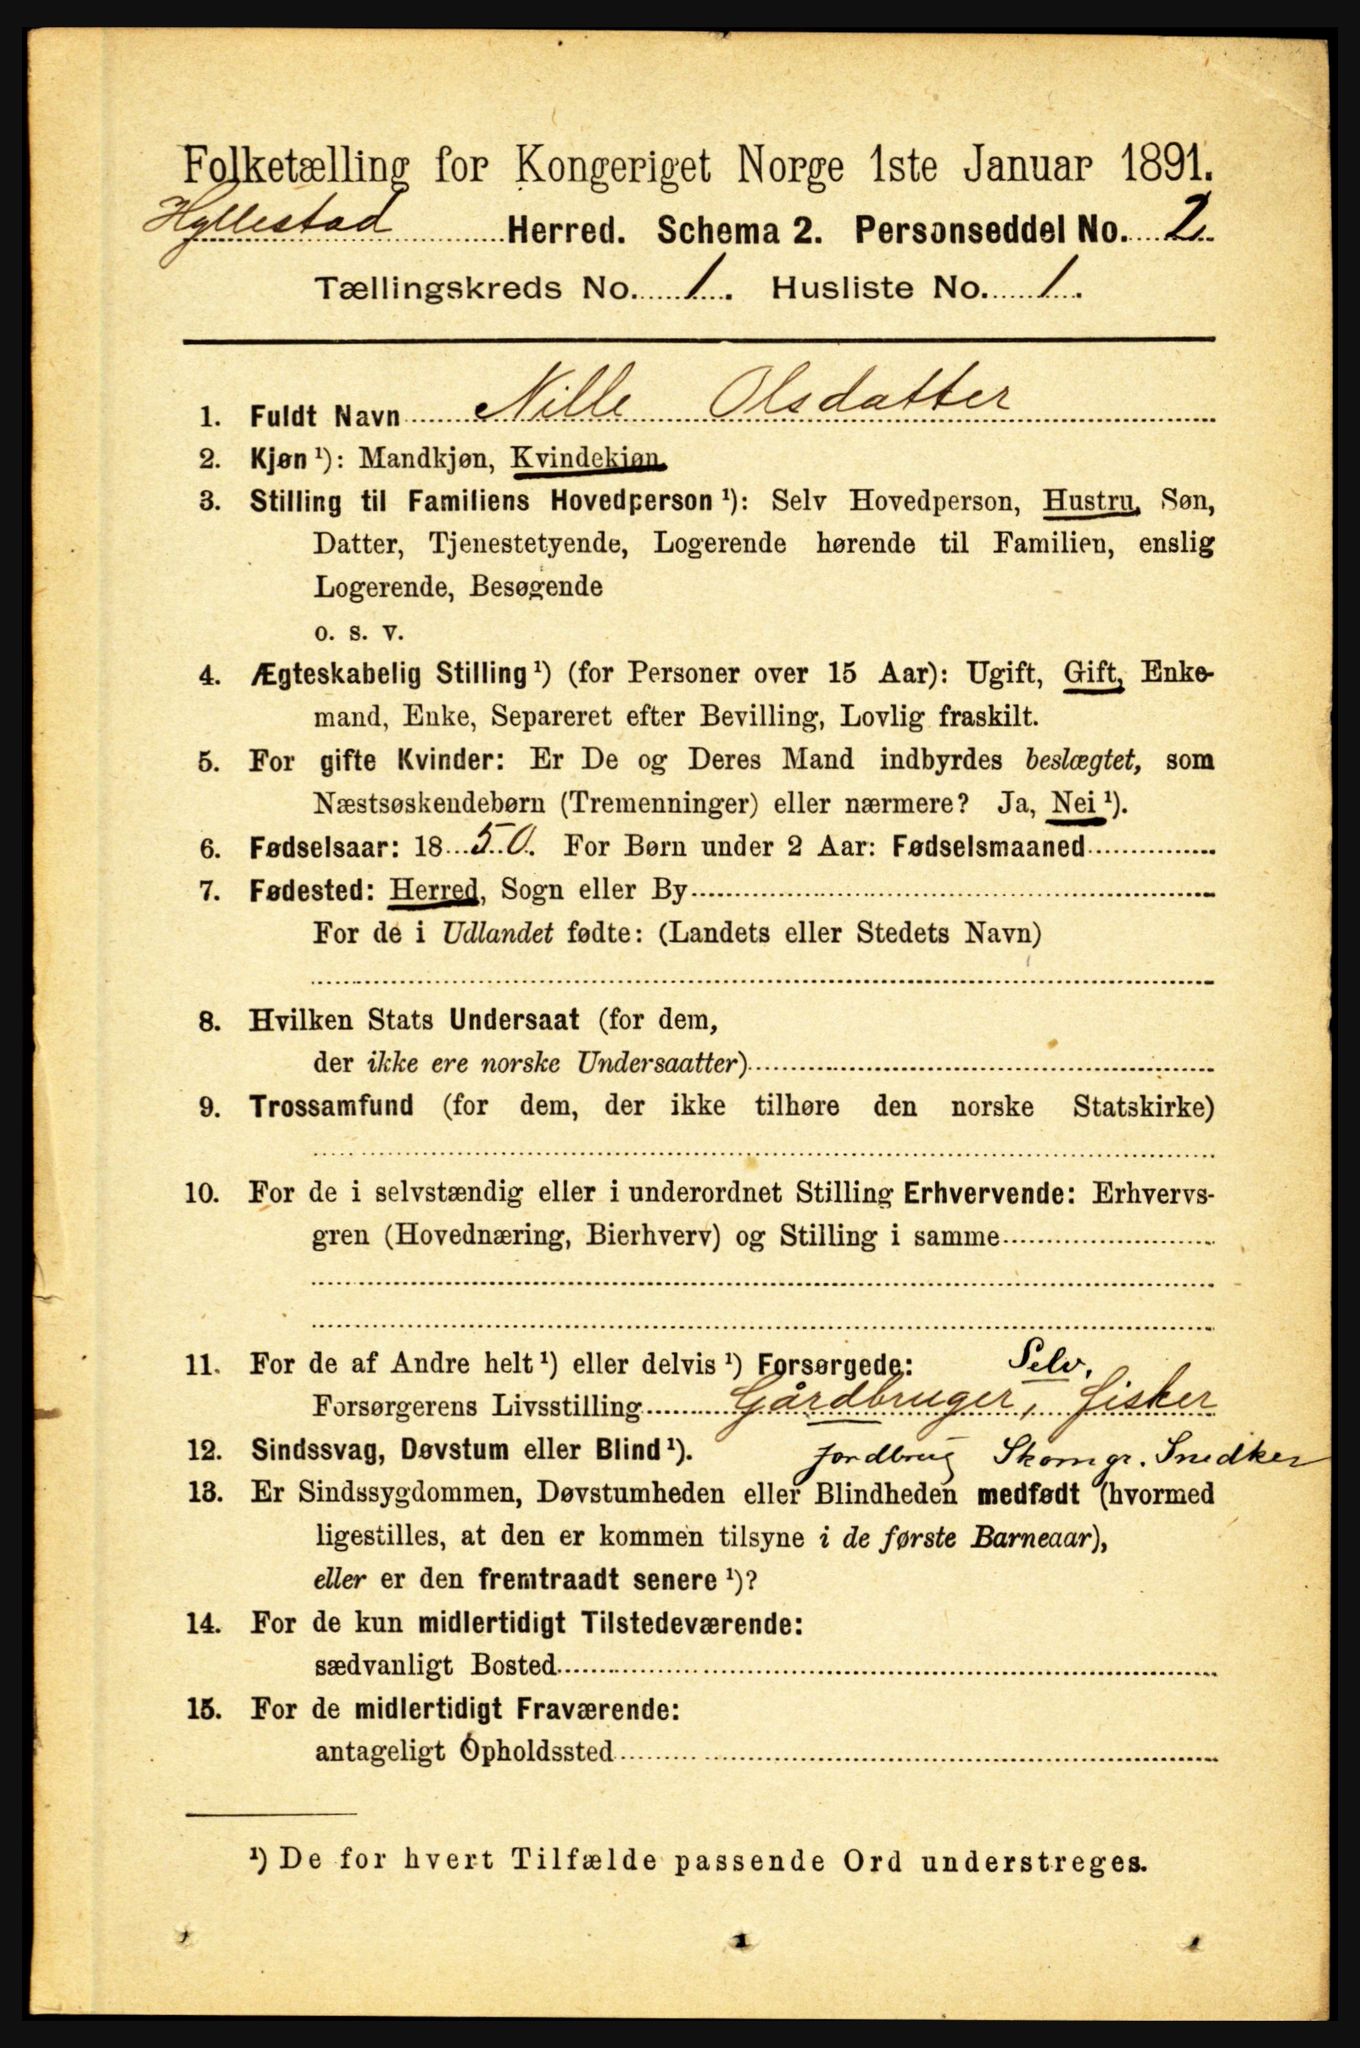 Folketælling for Kongeriget Norge 1ste Januar 1891.
Hyllestad Herred. Schema 2. Personseddel No. 2
Tællingskreds No. 1. Husliste No. 1.
1. Fuldt Navn Nille Olsdatter
2. Kjøn ¹): Mandkjøn, Kvindekjøn.
3. Stilling til Familiens Hovedperson ¹): Selv Hovedperson, Hustru, Søn,
Datter, Tjenestetyende, Logerende hørende til Familien, enslig
Logerende, Besøgende
o. s. v.
4. Ægteskabelig Stilling ¹) (for Personer over 15 Aar): Ugift, Gift, Enke-
mand, Enke, Separeret efter Bevilling, Lovlig fraskilt.
5. For gifte Kvinder: Er De og Deres Mand indbyrdes beslægtet, som
Næstsøskendebørn (Tremenninger) eller nærmere? Ja, Nei ¹).
6. Fødselsaar: 1850. For Børn under 2 Aar: Fødselsmaaned
7. Fødested: Herred, Sogn eller By
For de i Udlandet fødte: (Landets eller Stedets Navn)
8. Hvilken Stats Undersaat (for dem,
der ikke ere norske Undersaatter)
9. Trossamfund (for dem, der ikke tilhøre den norske Statskirke)
10. For de i selvstændig eller i underordnet Stilling Erhvervende: Erhvervs-
gren (Hovednæring, Bierhverv) og Stilling i samme
11. For de af Andre helt ¹) eller delvis ¹) Forsørgede: Selv.
Forsørgerens Livsstilling Gårdbruger, fisker
12. Sindssvag, Døvstum eller Blind ¹). Jordbrug Skomgr. Snedker
13. Er Sindssygdommen, Døvstumheden eller Blindheden medfødt (hvormed
ligestilles, at den er kommen tilsyne i de første Barneaar),
eller er den fremtraadt senere ¹)?
14. For de kun midlertidigt Tilstedeværende:
sædvanligt Bosted
15. For de midlertidigt Fraværende:
antageligt Opholdssted
¹) De for hvert Tilfælde passende Ord understreges.